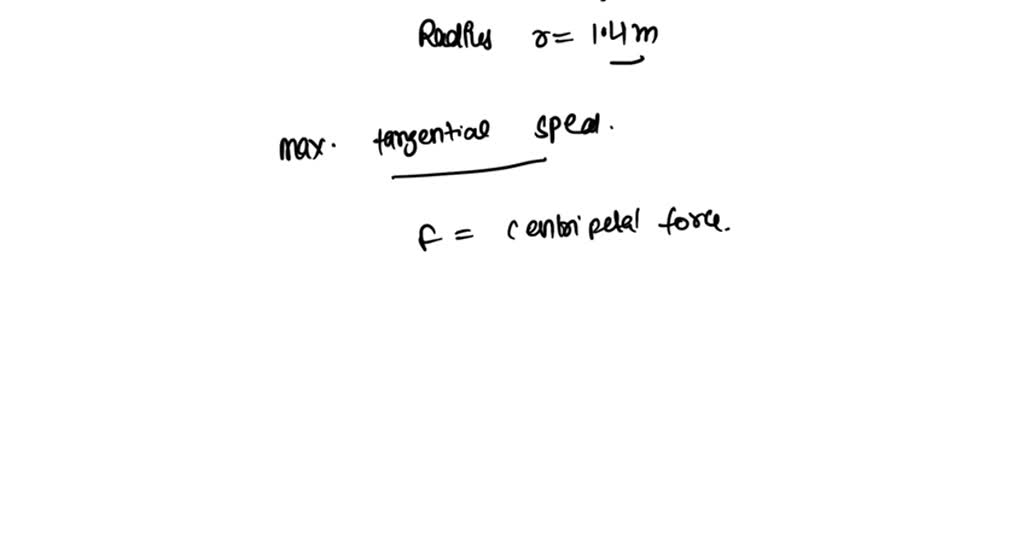 Radius r = 1.4 m
max. tangential speed.
F = centripetal force.